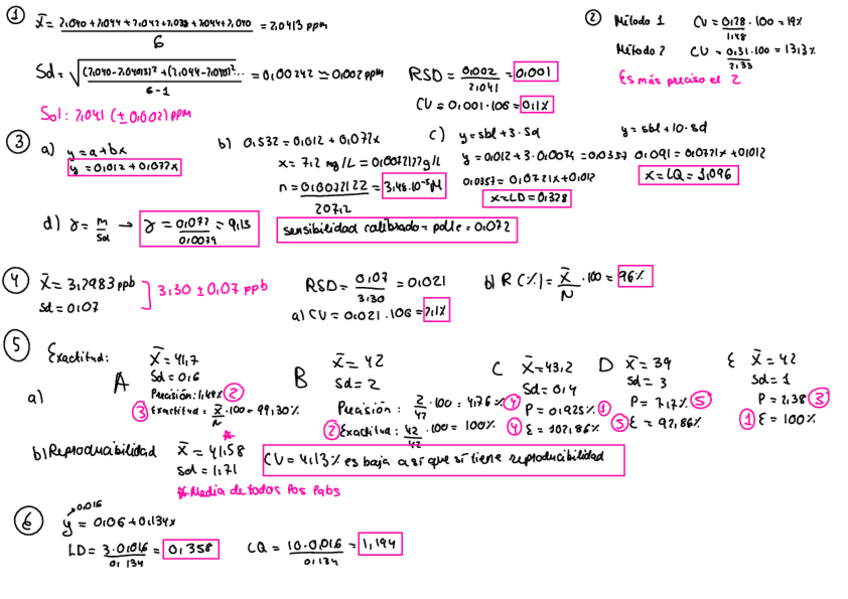 ① x̄ = 2,040 + 2,044 + 2,042 + 2,039 + 2,044 + 2,040 / 6 = 2,0413 ppm
Sd = √((2,040-2,0413)² + (2,044-2,0413)²... / 6-1) = 0,00242 ≃ 0,002 ppm
RSD = 0,002 / 2,041 = 0,001
CV = 0,001·100 = 0,1%
Sol: 2,041 (± 0,002) ppm
② Método 1 CV = 0,28 / 1,48 · 100 = 19%
Método 2 CV = 0,31 / 2,33 · 100 = 13,3%
Es más preciso el 2
③ a) y = a + bx
y = 0,012 + 0,072x
b) 0,532 = 0,012 + 0,072x
x = 7,2 mg/L = 0,0072122 g/L
n = 0,0072122 / 207,2 = 3,48·10⁻⁵ M
c) y = sbl + 3·sd
y = 0,012 + 3·0,0079 = 0,0357
0,0357 = 0,0721x + 0,012
x = LD = 0,328
y = sbl + 10·sd
0,091 = 0,0721x + 0,012
x = LQ = 1,096
d) γ = m / Sd → γ = 0,072 / 0,0079 = 9,13
sensibilidad calibrado = pdte = 0,072
④ x̄ = 3,2983 ppb
sd = 0,07
3,30 ± 0,07 ppb
RSD = 0,07 / 3,30 = 0,021
a) CV = 0,021·100 = 2,1%
b) R (%) = x̄ / N · 100 = 96%
⑤ Exactitud:
a)
A x̄ = 41,7
Sd = 0,6
Precisión: 1,44% ②
③ Exactitud = x̄ / N · 100 = 99,30%
B x̄ = 42
Sd = 2
Precisión: 2 / 42 · 100 = 4,76% ④
② Exactitud: 42 / 42 · 100 = 100%
C x̄ = 43,2
Sd = 0,4
P = 0,925% ①
④ E = 102,86%
D x̄ = 39
Sd = 3
P = 7,7% ⑤
⑤ E = 92,86%
E x̄ = 42
Sd = 1
P = 2,38 ③
① E = 100%
b) Reproducibilidad
* x̄ = 41,58
sd = 1,71
CV = 4,13% es baja así que sí tiene reproducibilidad
* Media de todos los labs
⑥ 0,016
y = 0,06 + 0,134x
LD = 3·0,016 / 0,134 = 0,358
CQ = 10·0,016 / 0,134 = 1,194